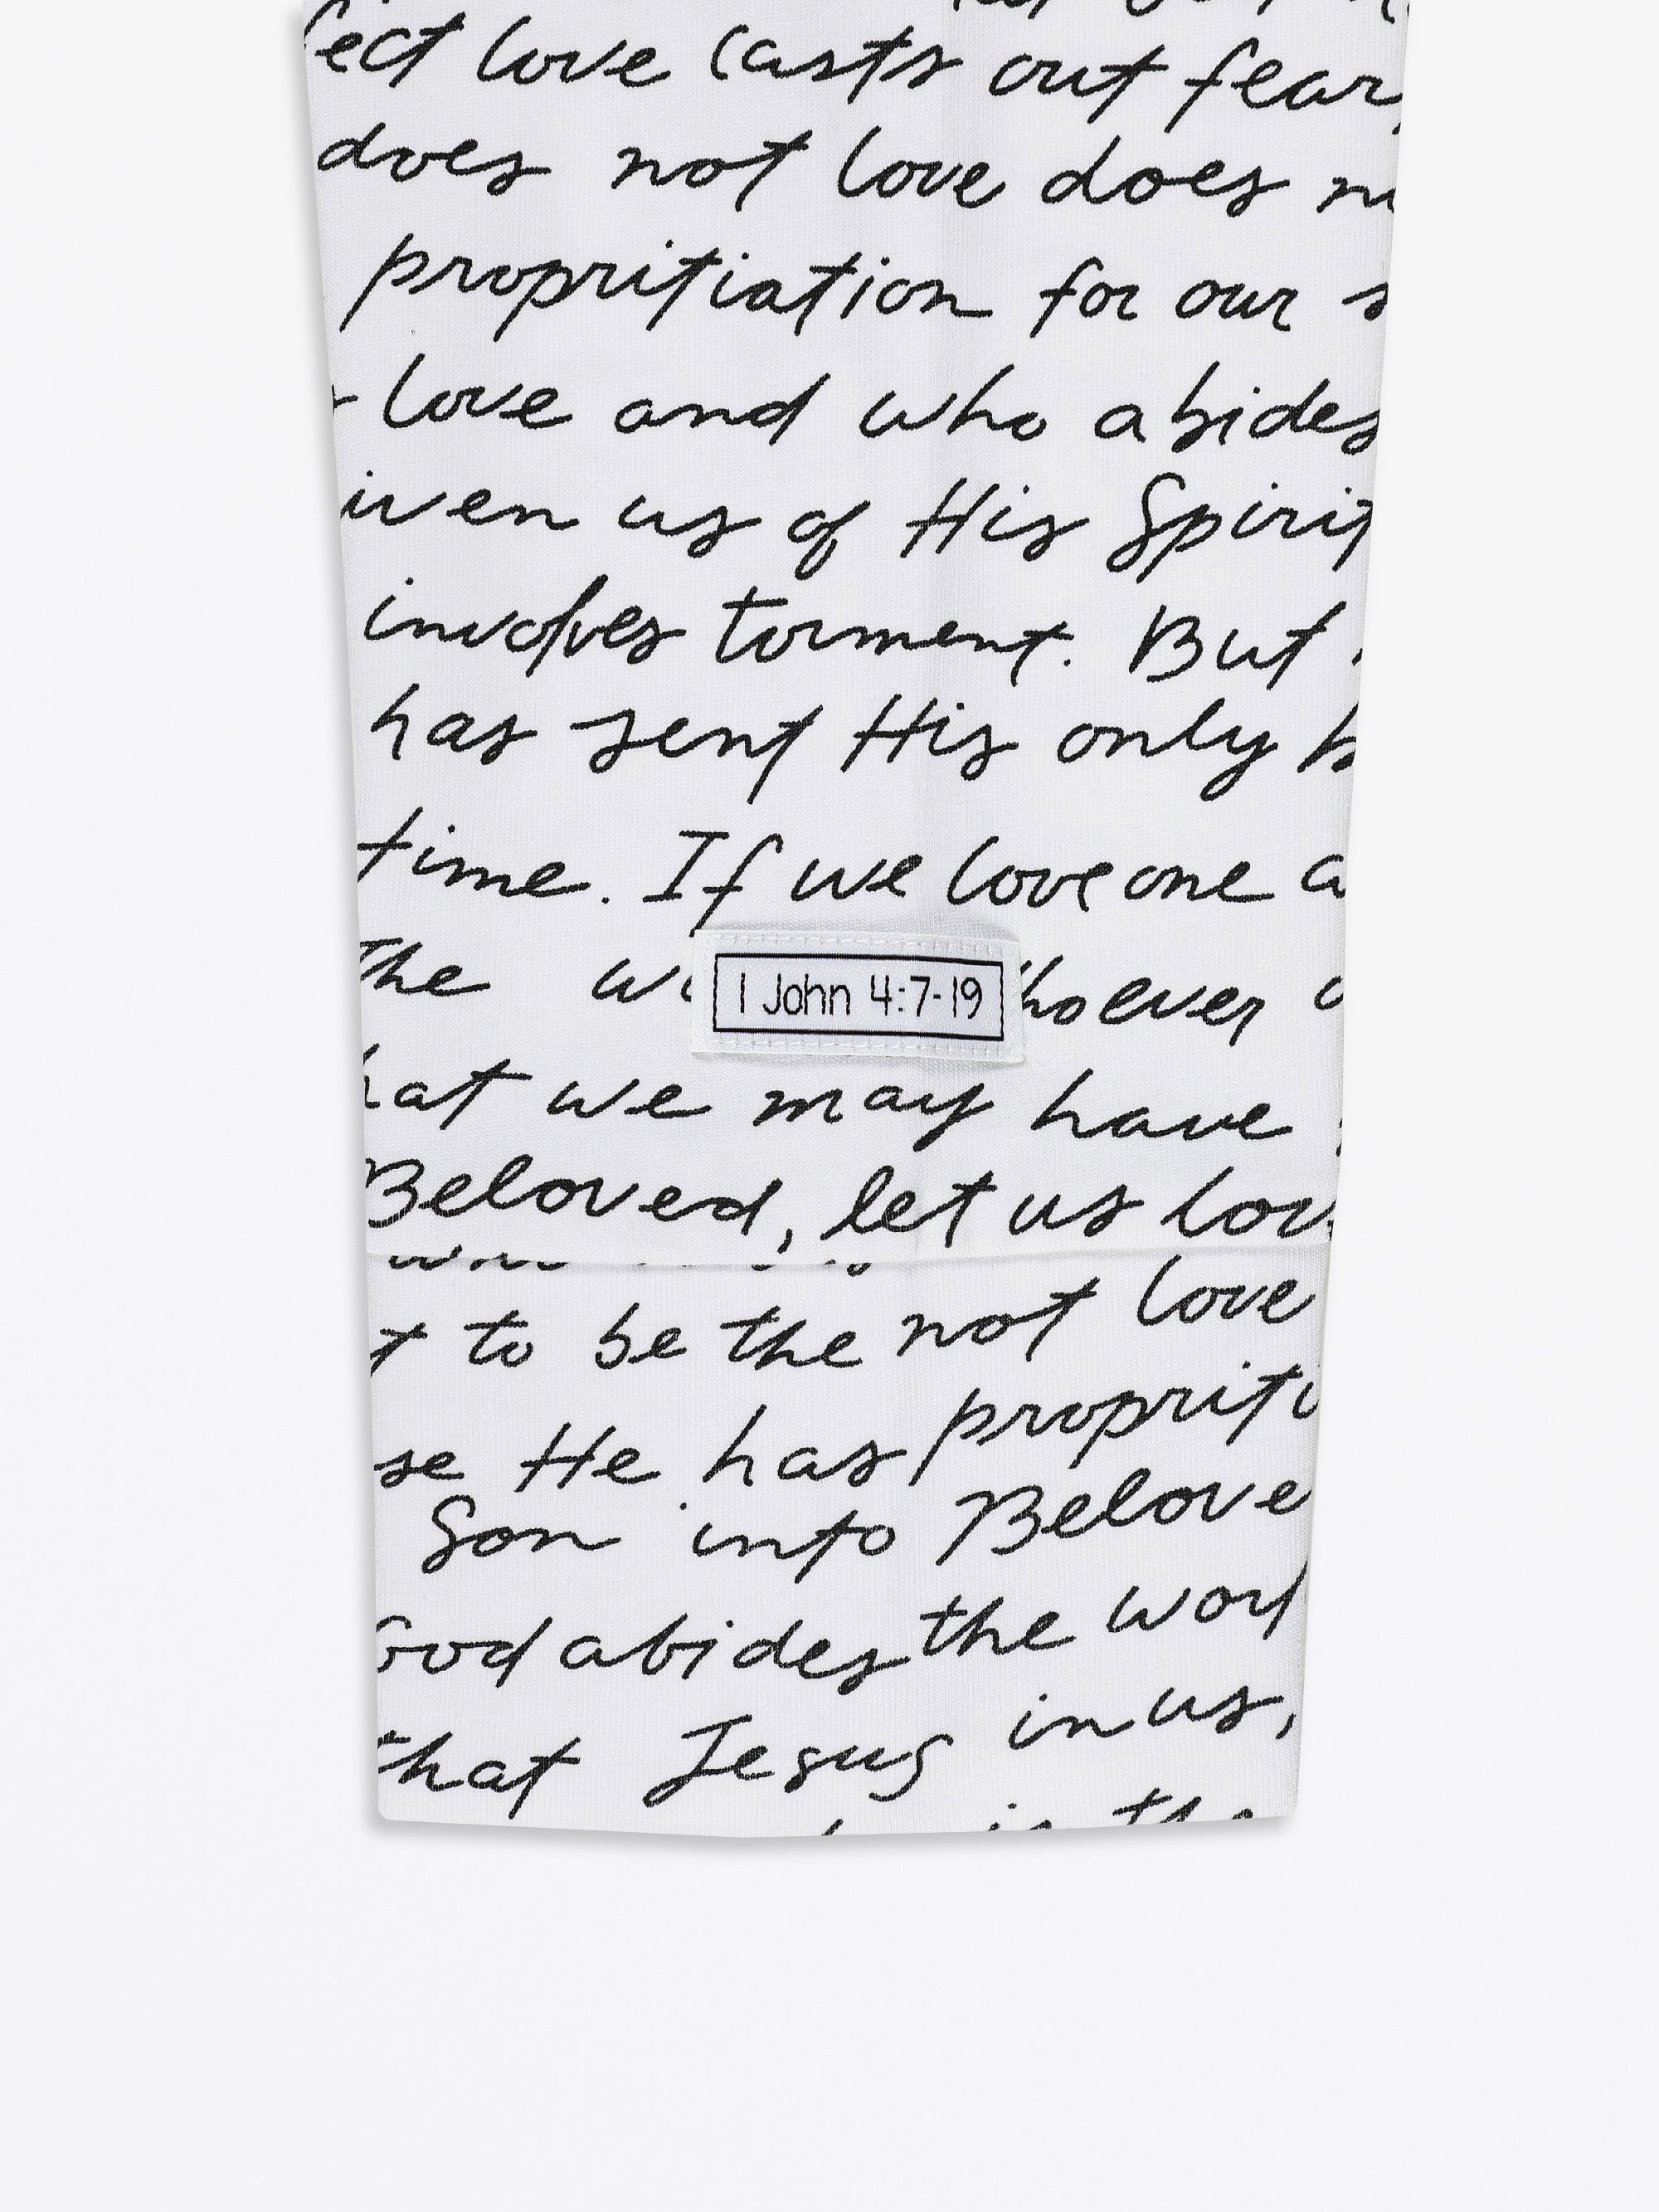 fect love casts out fear,
does not love does n
propritiation for our s
love and who abides
iven us of His Spirit
involves torment. But
has sent His only b
time. If we love one a
the w
1 John 4:7-19
hoever
hat we may have
Beloved, let us lov
t to be the not love
se He has propriti
Son into Belove
God abides the worl
that Jesus in us,
is the